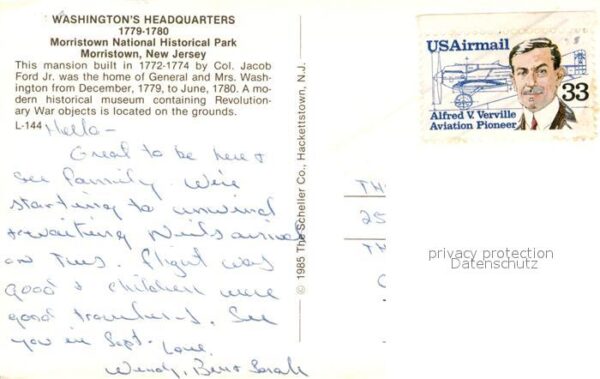 WASHINGTON'S HEADQUARTERS
1779-1780
Morristown National Historical Park
Morristown, New Jersey
This mansion built in 1772-1774 by Col. Jacob
Ford Jr. was the home of General and Mrs. Wash-
ington from December, 1779, to June, 1780. A mo-
dern historical museum containing Revolution-
ary War objects is located on the grounds.
L-144
Hello -
Great to be here &
see family. We're
starting to unwind
& waiting Neil's arrival
on Tues. Flight was
good & children were
good travelers. See
you in Sept.
Love,
Wendy, Ben & Sarah
© 1985 The Scheller Co., Hackettstown, N.J.
USAirmail
33
Alfred V. Verville
Aviation Pioneer
TH
25
TH
privacy protection
Datenschutz